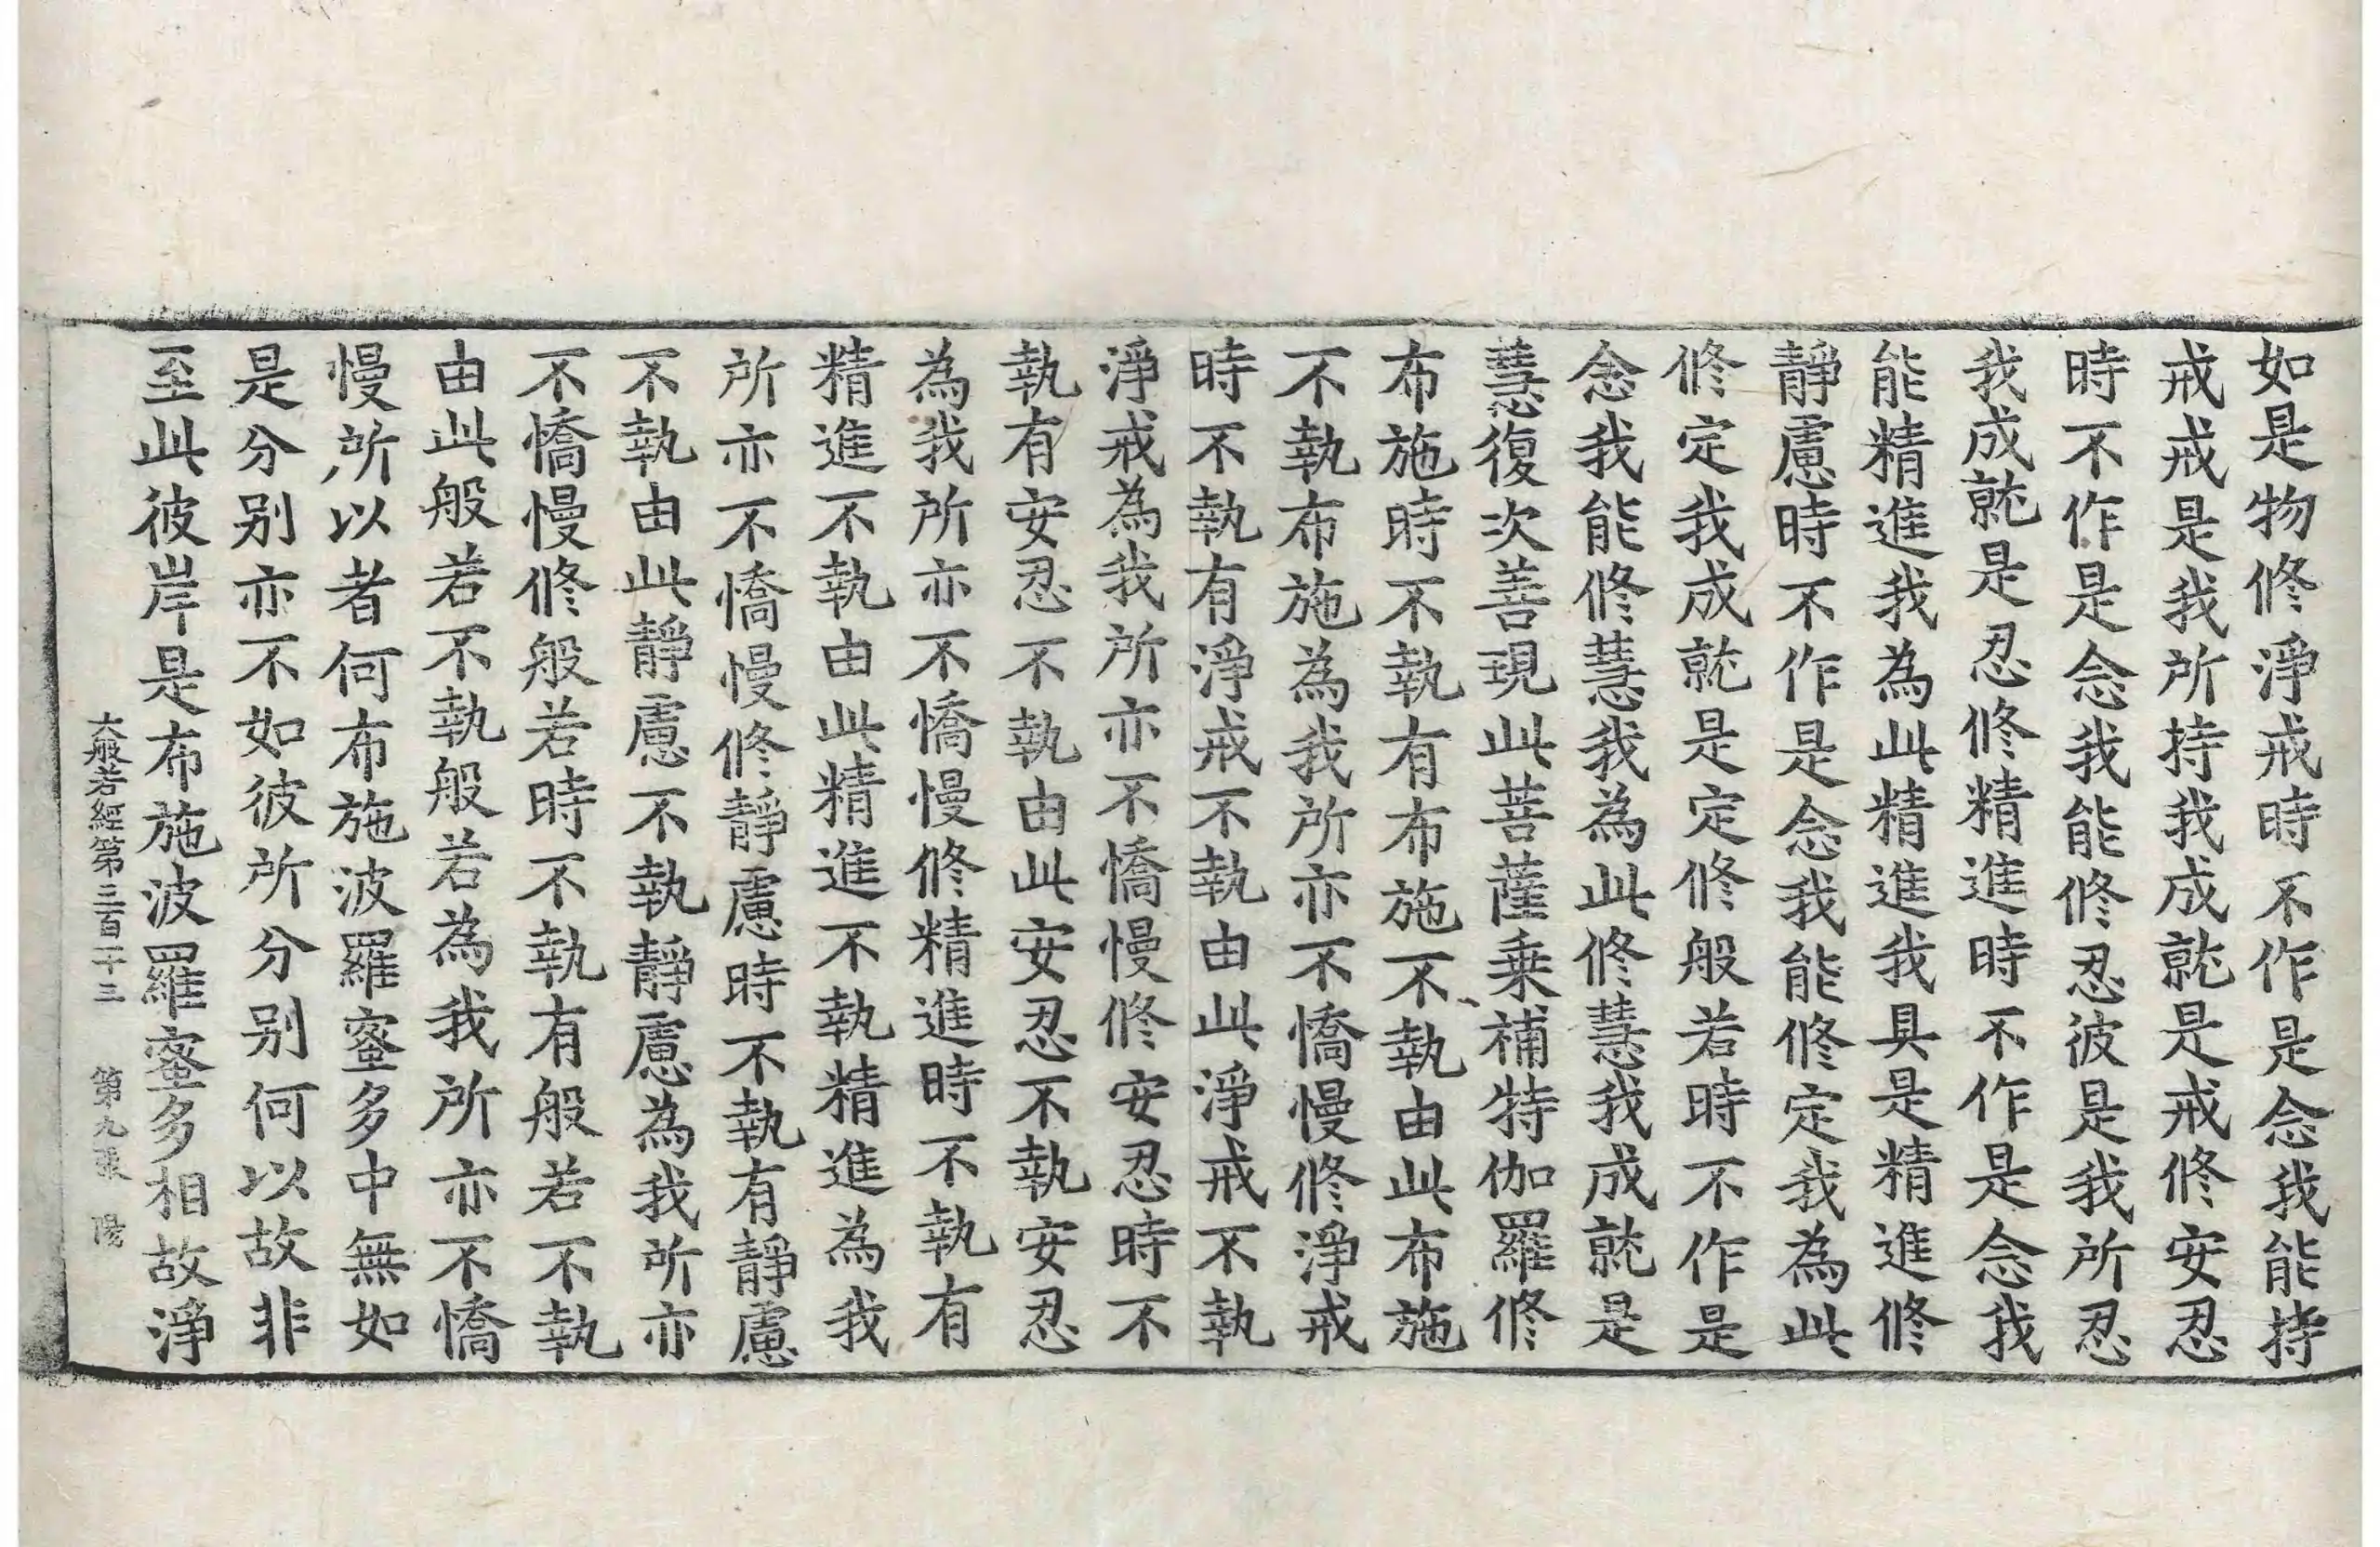 如是物修淨戒時不作是念我能持
戒戒是我所持我成就是戒修安忍
時不作是念我能修忍彼是我所忍
我成就是忍修精進時不作是念我
能精進我為此精進我具是精進修
靜慮時不作是念我能修定我為此
修定我成就是定修般若時不作是
念我能修慧我為此修慧我成就是
慧復次善現此菩薩乗補特伽羅修
布施時不執有布施不執由此布施
不執布施為我所亦不憍慢修淨戒
時不執有淨戒不執由此淨戒不執
淨戒為我所亦不憍慢修安忍時不
執有安忍不執由此安忍不執安忍
為我所亦不憍慢修精進時不執有
精進不執由此精進不執精進為我
所亦不憍慢修靜慮時不執有靜慮
不執由此靜慮不執靜慮為我所亦
不憍慢修般若時不執有般若不執
由此般若不執般若為我所亦不憍
慢所以者何布施波羅蜜多中無如
是分别亦不如彼所分别何以故非
至此彼岸是布施波羅蜜多相故淨
大般若經第三百二十三 第九張 陽